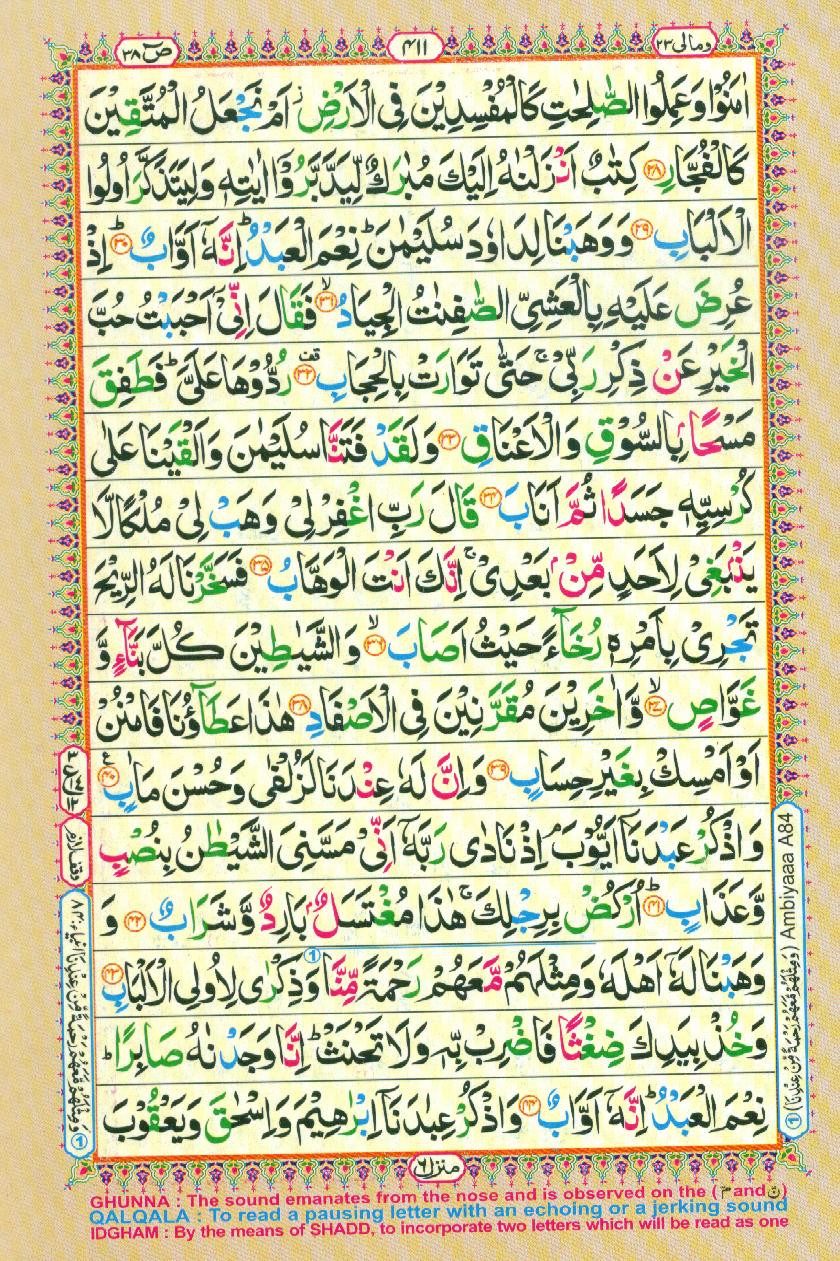 ومالی ۲۳
۴۱۱
صٓ ۳۸
اٰمَنُوۡا وَعَمِلُوا الصّٰلِحٰتِ كَالۡمُفۡسِدِيۡنَ فِى الۡاَرۡضِ ز اَمۡ نَجۡعَلُ الۡمُتَّقِيۡنَ
كَالۡفُجَّارِ ﴿۲۸﴾ كِتٰبٌ اَنۡزَلۡنٰهُ اِلَيۡكَ مُبٰرَكٌ لِّيَدَّبَّرُوۡۤا اٰيٰتِهٖ وَلِيَتَذَكَّرَ اُولُوا
الۡاَلۡبَابِ ﴿۲۹﴾ وَوَهَبۡنَا لِدَاوٗدَ سُلَيۡمٰنَ ؕ نِعۡمَ الۡعَبۡدُ ؕ اِنَّهٗۤ اَوَّابٌ ﴿۳۰﴾ ؕ اِذۡ
عُرِضَ عَلَيۡهِ بِالۡعَشِىِّ الصّٰفِنٰتُ الۡجِيَادُ ﴿۳۱﴾ ۙ فَقَالَ اِنِّىۡۤ اَحۡبَبۡتُ حُبَّ
الۡخَيۡرِ عَنۡ ذِكۡرِ رَبِّىۡ ۚ حَتّٰى تَوَارَتۡ بِالۡحِجَابِ ﴿۳۲﴾ رُدُّوۡهَا عَلَىَّ ؕ فَطَفِقَ
مَسۡحًۢا بِالسُّوۡقِ وَالۡاَعۡنَاقِ ﴿۳۳﴾ وَلَقَدۡ فَتَنَّا سُلَيۡمٰنَ وَاَلۡقَيۡنَا عَلٰى
كُرۡسِيِّهٖ جَسَدًا ثُمَّ اَنَابَ ﴿۳۴﴾ قَالَ رَبِّ اغۡفِرۡ لِىۡ وَهَبۡ لِىۡ مُلۡكًا لَّا
يَنۡۢبَغِىۡ لِاَحَدٍ مِّنۡۢ بَعۡدِىۡ ۚ اِنَّكَ اَنۡتَ الۡوَهَّابُ ﴿۳۵﴾ فَسَخَّرۡنَا لَهُ الرِّيۡحَ
تَجۡرِىۡ بِاَمۡرِهٖ رُخَآءً حَيۡثُ اَصَابَ ﴿۳۶﴾ ۙ وَالشَّيٰطِيۡنَ كُلَّ بَنَّآءٍ وَّ
غَوَّاصٍ ﴿۳۷﴾ ۙ وَّاٰخَرِيۡنَ مُقَرَّنِيۡنَ فِى الۡاَصۡفَادِ ﴿۳۸﴾ هٰذَا عَطَآؤُنَا فَامۡنُنۡ
اَوۡ اَمۡسِكۡ بِغَيۡرِ حِسَابٍ ﴿۳۹﴾ وَاِنَّ لَهٗ عِنۡدَنَا لَزُلۡفٰى وَحُسۡنَ مَاٰبٍ ﴿۴۰﴾ ع
وَاذۡكُرۡ عَبۡدَنَاۤ اَيُّوۡبَ ۘ اِذۡ نَادٰى رَبَّهٗۤ اَنِّىۡ مَسَّنِىَ الشَّيۡطٰنُ بِنُصۡبٍ
وَّعَذَابٍ ﴿۴۱﴾ ؕ اُرۡكُضۡ بِرِجۡلِكَ ۚ هٰذَا مُغۡتَسَلٌۢ بَارِدٌ وَّشَرَابٌ ﴿۴۲﴾ وَ
وَهَبۡنَا لَهٗۤ اَهۡلَهٗ وَمِثۡلَهُمۡ مَّعَهُمۡ رَحۡمَةً مِّنَّا وَذِكۡرٰى لِاُولِى الۡاَلۡبَابِ ﴿۴۳﴾
وَخُذۡ بِيَدِكَ ضِغۡثًا فَاضۡرِبْ بِّهٖ وَلَا تَحۡنَثۡ ؕ اِنَّا وَجَدۡنٰهُ صَابِرًا ؕ
نِعۡمَ الۡعَبۡدُ ؕ اِنَّهٗۤ اَوَّابٌ ﴿۴۴﴾ وَاذۡكُرۡ عِبٰدَنَاۤ اِبۡرٰهِيۡمَ وَاِسۡحٰقَ وَيَعۡقُوۡبَ
منزل ۶
وقف لازم
① (وَمِثۡلَهُمۡ مَّعَهُمۡ رَحۡمَةً مِّنۡ عِنۡدِنَا) Ambiyaaa A84
① وَمِثۡلَهُمۡ مَّعَهُمۡ رَحۡمَةً مِّنۡ عِنۡدِنَا انبیاء: ۸۴
GHUNNA : The sound emanates from the nose and is observed on the (مّ and نّ)
QALQALA : To read a pausing letter with an echoing or a jerking sound
IDGHAM : By the means of SHADD, to incorporate two letters which will be read as one